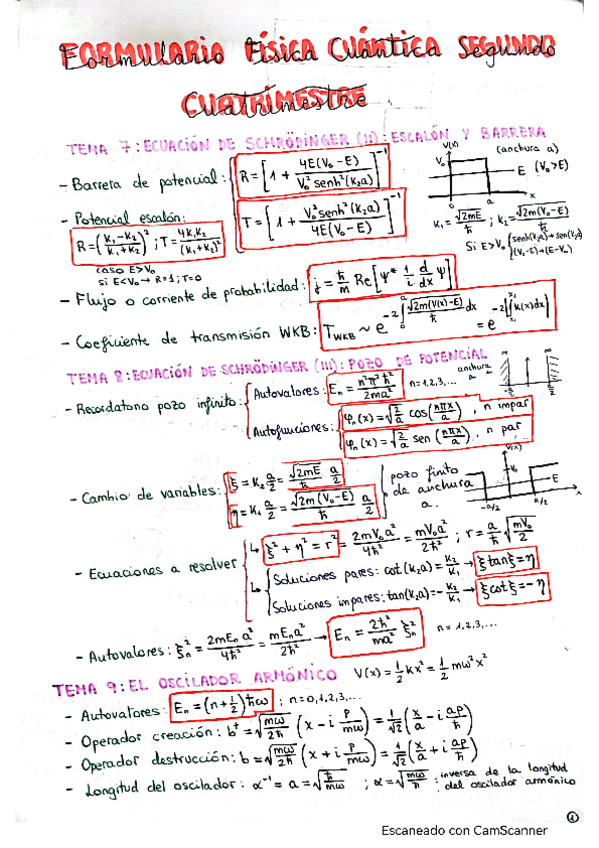 Formulario Física Cuántica Segundo
Cuatrimestre
TEMA 7: ECUACIÓN DE SCHRÖDINGER (II): ESCALÓN Y BARRERA
- Barrera de potencial: R = [1 + 4E(V₀-E) / V₀² senh²(k₂a)]⁻¹
T = [1 + V₀² senh²(k₂a) / 4E(V₀-E)]⁻¹
V(x) (anchura a)
V₀ E (V₀>E)
0 a x
k₁ = √2mE / ħ ; k₂ = √2m(V₀-E) / ħ
Si E>V₀ { senh(k₂a) → sen(k₂a)
(V₀-E) → (E-V₀)
- Potencial escalón:
R = (k₁-k₂ / k₁+k₂)² ; T = 4k₁k₂ / (k₁+k₂)²
caso E>V₀
si E<V₀ → R=1; T=0
- Flujo o corriente de probabilidad: j = ħ/m Re[Ψ* 1/i d/dx Ψ]
- Coeficiente de transmisión WKB: T_WKB ~ e^(-2∫₀ᵃ √2m(V(x)-E)/ħ dx) = e^(-2∫ₓ₁ˣ² k(x)dx)
TEMA 8: ECUACIÓN DE SCHRÖDINGER (III): POZO DE POTENCIAL
anchura a
- Recordatorio pozo infinito: { Autovalores: Eₙ = n²π²ħ² / 2ma² n=1,2,3,...
Autofunciones: φₙ(x) = √2/a cos(nπx/a), n impar
φₙ(x) = √2/a sen(nπx/a), n par
- Cambio de variables: { ξ = k₂ a/2 = √2mE / ħ a/2
η = k₁ a/2 = √2m(V₀-E) / ħ a/2
pozo finito
de anchura
a.
V(x)
V₀ E
-a/2 a/2 x
- Ecuaciones a resolver { ↳ ξ² + η² = r² = 2mV₀a² / 4ħ² = mV₀a² / 2ħ² ; r = a/ħ √mV₀/2
↳ { Soluciones pares: cot(k₂a) = k₂/k₁ → ξtanξ = η
Soluciones impares: tan(k₂a) = - k₂/k₁ → ξcotξ = -η
- Autovalores: ξₙ² = 2mEₙa² / 4ħ² = mEₙa² / 2ħ² → Eₙ = 2ħ² / ma² ξₙ² n = 1,2,3,...
TEMA 9: EL OSCILADOR ARMÓNICO V(x) = 1/2 kx² = 1/2 mω²x²
- Autovalores: Eₙ = (n+1/2)ħω ; n=0,1,2,3,...
- Operador creación: b⁺ = √mω/2ħ (x - i p/mω) = 1/√2 (x/a - i ap/ħ)
- Operador destrucción: b = √mω/2ħ (x + i p/mω) = 1/√2 (x/a + i ap/ħ)
- Longitud del oscilador: α⁻¹ = a = √ħ/mω ; α = √mω/ħ : inversa de la longitud
del oscilador armónico
1
Escaneado con CamScanner